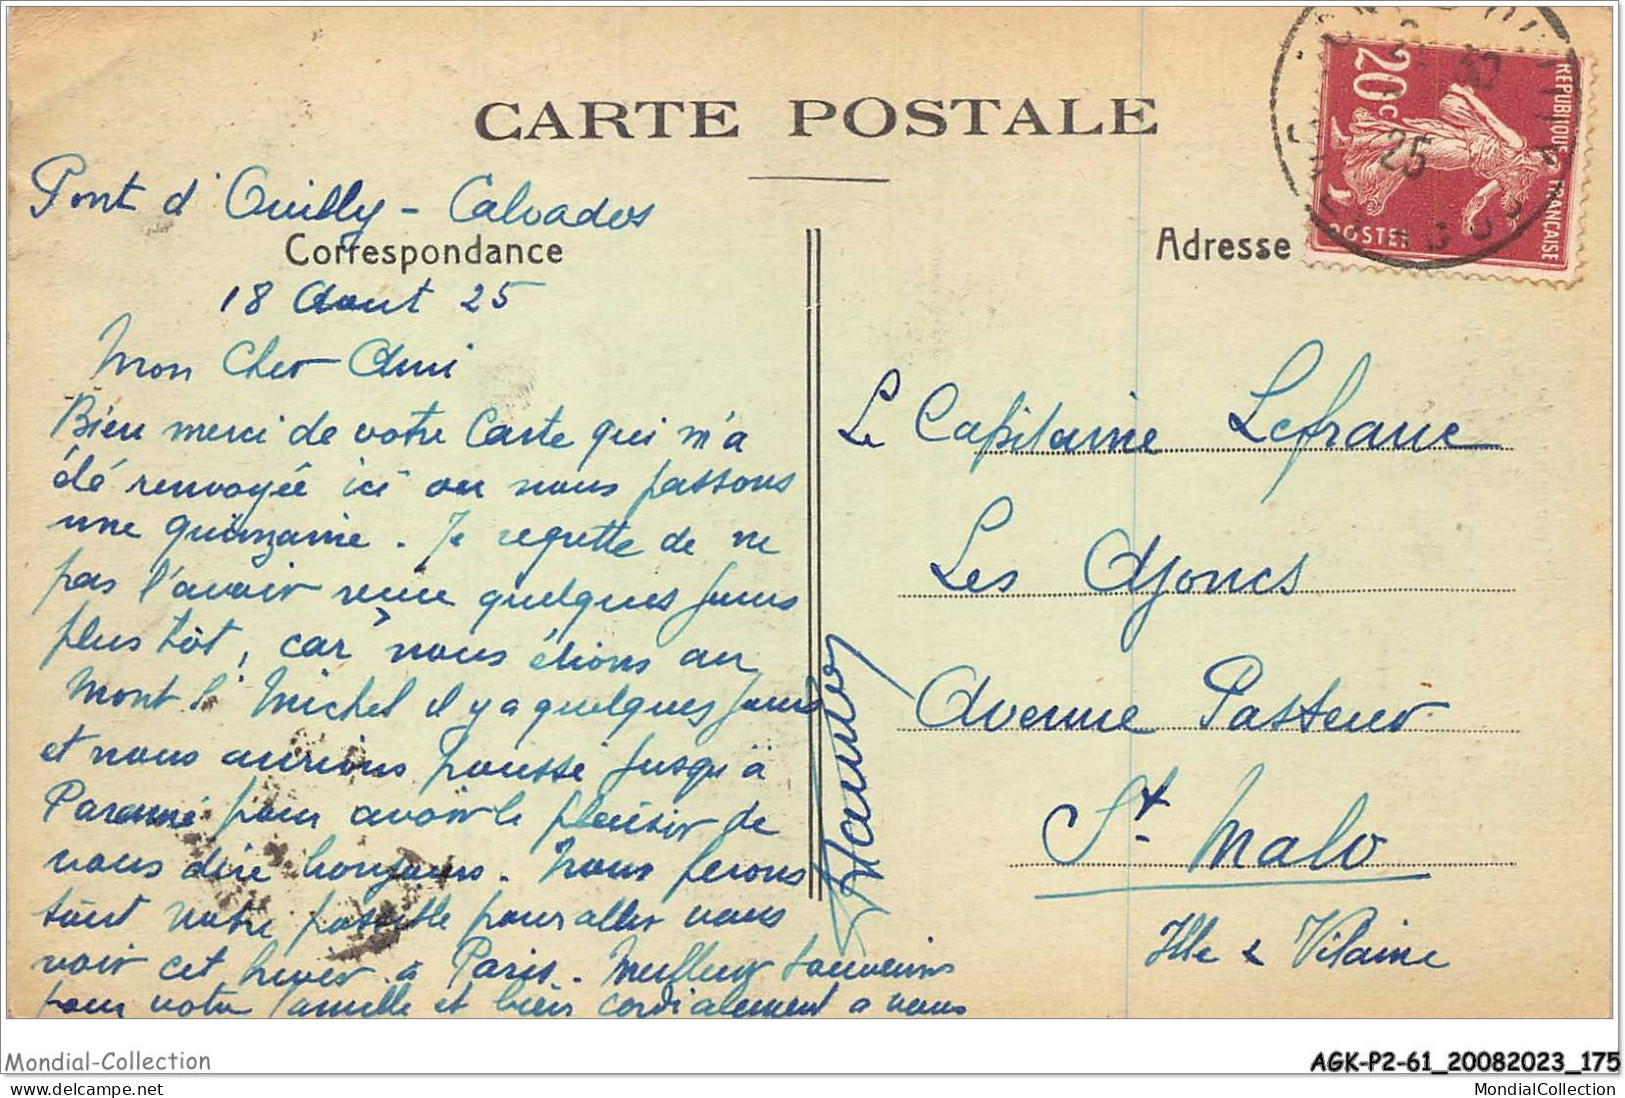 CARTE POSTALE
Pont d'Ouilly - Calvados
Correspondance
18 Aout 25
Mon Cher Ami
Bien merci de votre Carte qui m'a
été renvoyée ici ou nous passons
une quinzaine. Je regrette de ne
pas l'avoir reçue quelques jours
plus tôt, car nous étions au
Mont St Michel il y a quelques jours
et nous aurions poussé jusqu'à
Paramé pour avoir le plaisir de
vous dire bonjour. Nous ferons
tout notre possible pour aller vous
voir cet hiver à Paris. Meilleurs souvenirs
pour votre famille et bien cordialement a vous
Adresse
RÉPUBLIQUE FRANÇAISE
20c
POSTES
25
Le Capitaine Lefranc
Les Ajoncs
Avenue Pasteur
St. Malo
Ille & Vilaine
Mondial-Collection
AGK-P2-61_20082023_175
www.delcampe.net
MondialCollection